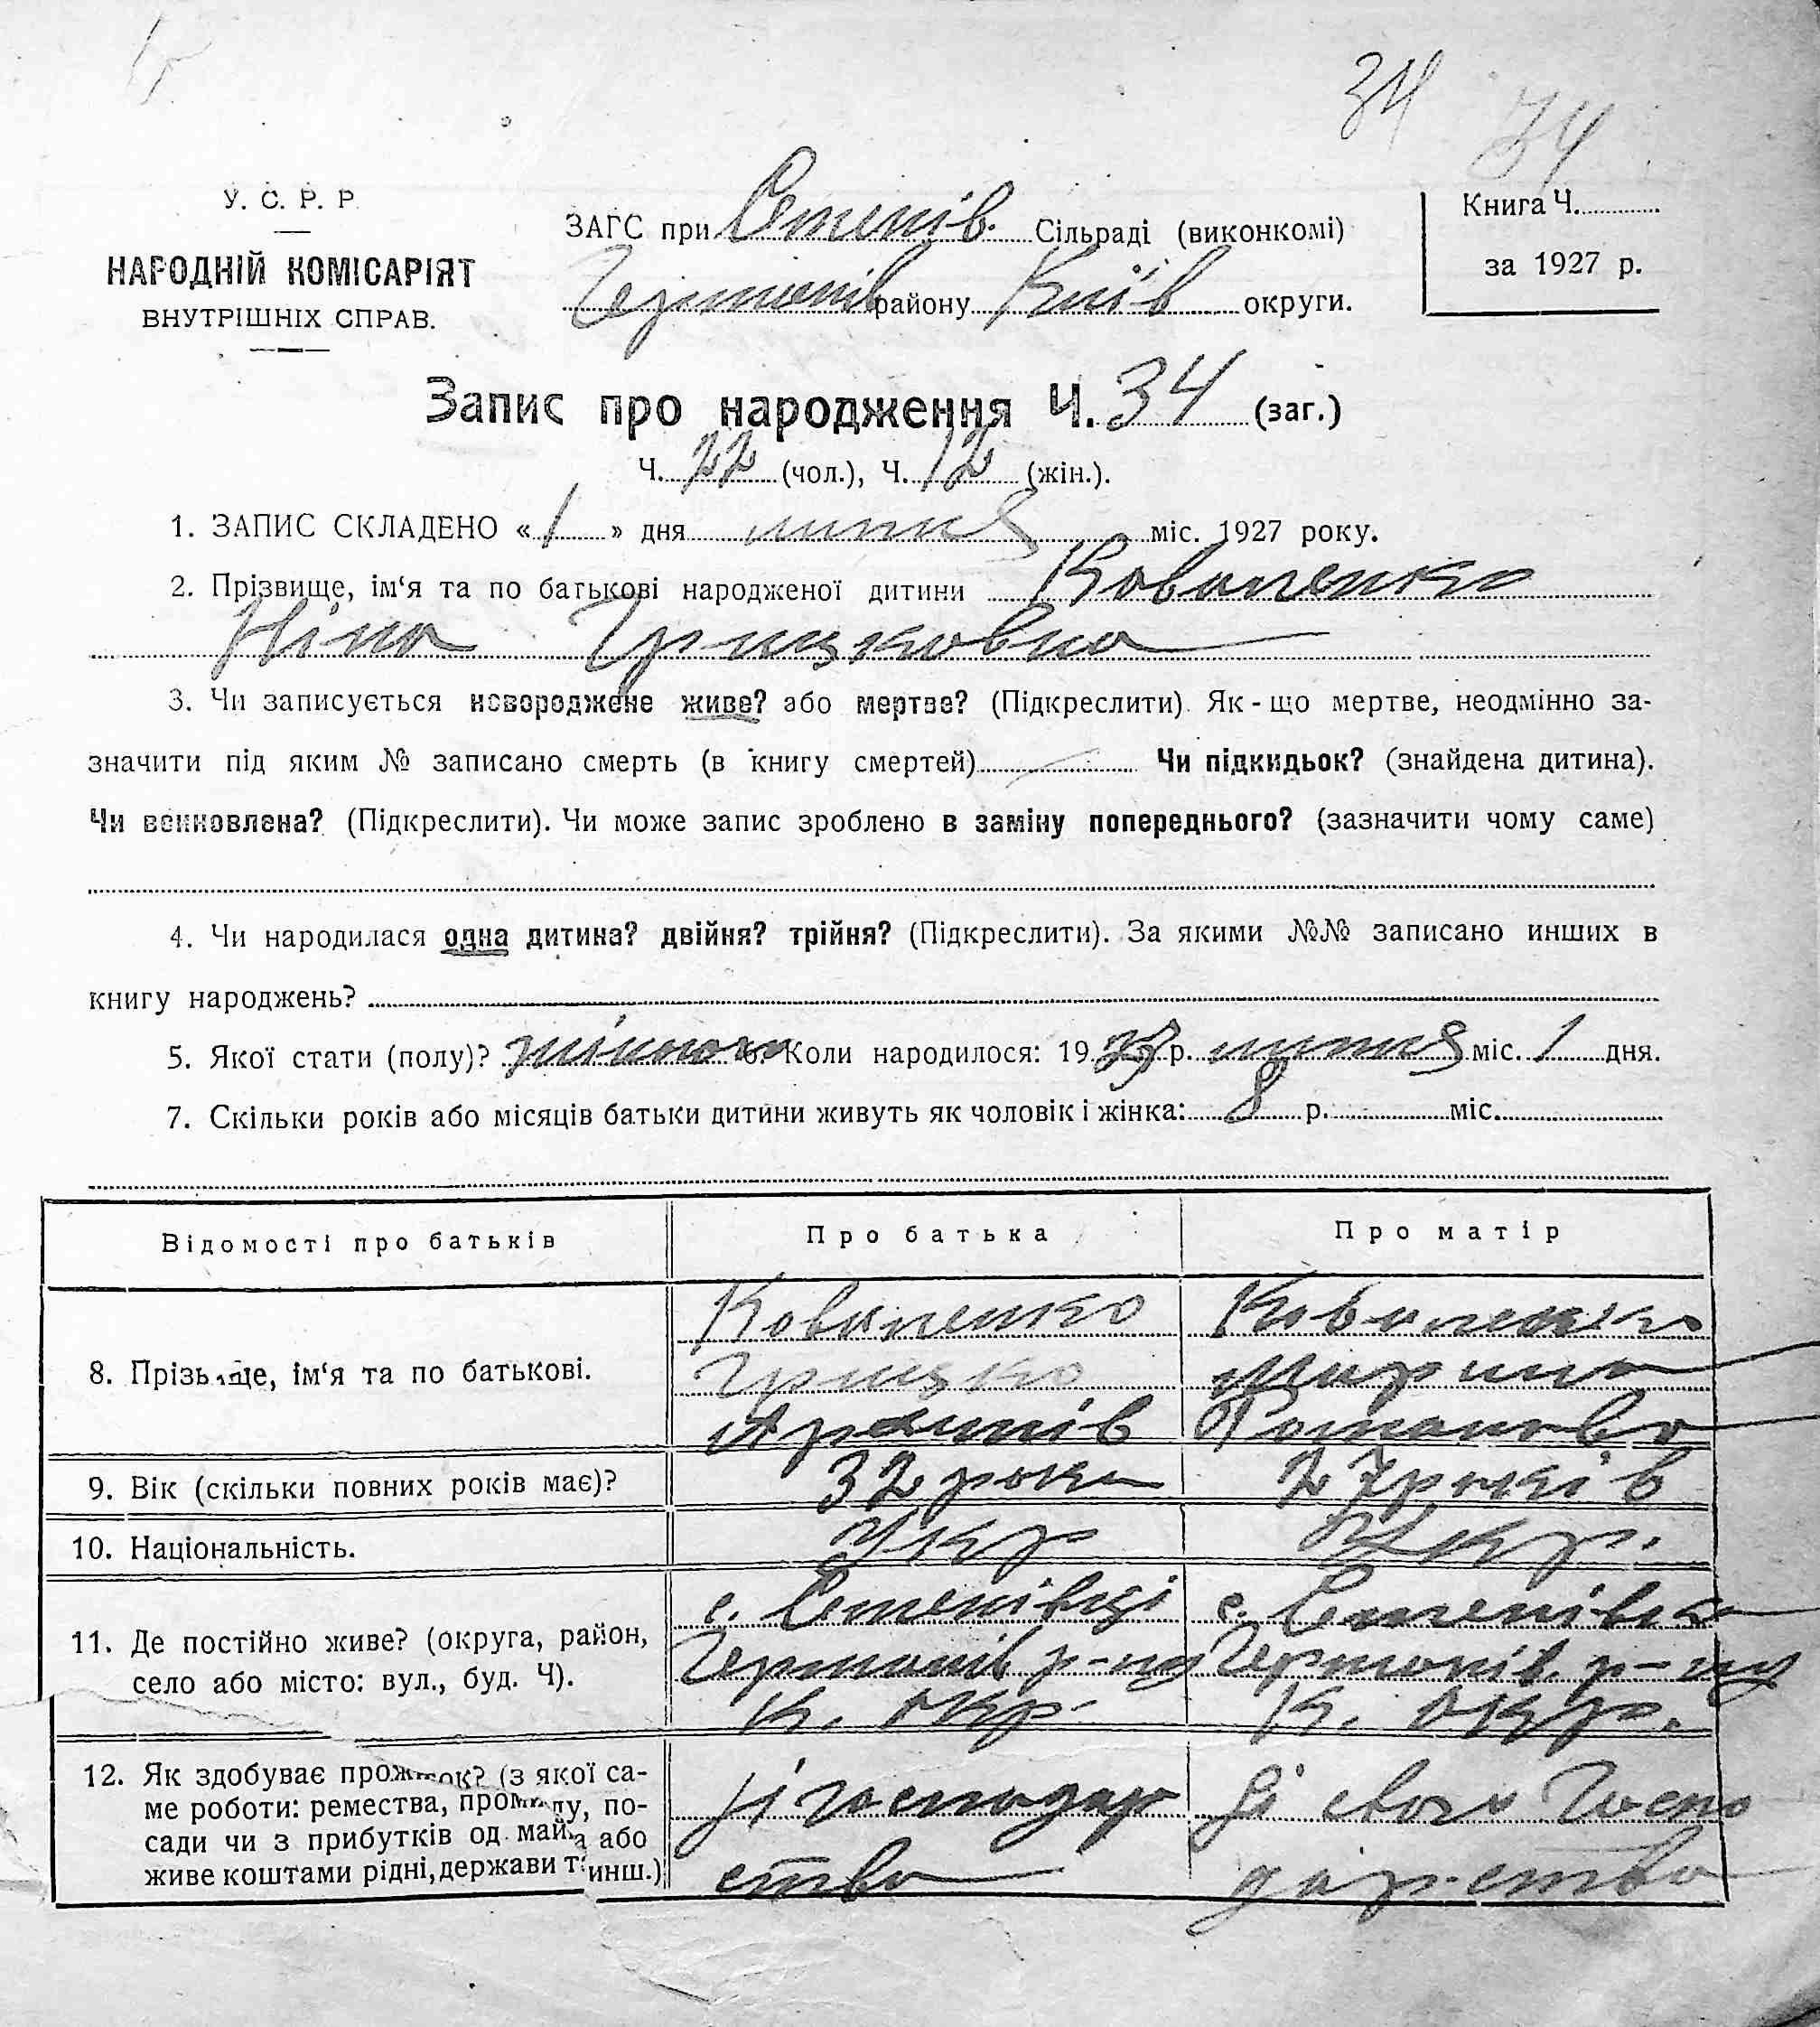 34 34
У. С. Р. Р.
НАРОДНІЙ КОМІСАРІЯТ
ВНУТРІШНІХ СПРАВ.
ЗАГС при Степів. Сільраді (виконкомі)
Германів району Київ округи.
Книга Ч.
за 1927 р.
Запис про народження Ч. 34 (заг.)
Ч. 22 (чол.), Ч. 12 (жін.).
1. ЗАПИС СКЛАДЕНО «1» дня липня міс. 1927 року.
2. Прізвище, ім‘я та по батькові народженої дитини Коваленко
Ніна Грицковна
3. Чи записується новороджене живе? або мертве? (Підкреслити). Як-що мертве, неодмінно за-
значити під яким № записано смерть (в книгу смертей) Чи підкидьок? (знайдена дитина).
Чи всиновлена? (Підкреслити). Чи може запис зроблено в заміну попереднього? (зазначити чому саме)
4. Чи народилася одна дитина? двійня? трійня? (Підкреслити). За якими №№ записано инших в
книгу народжень?
5. Якої стати (полу)? жіночого 6. Коли народилося: 1927 р. липня міс. 1 дня.
7. Скільки років або місяців батьки дитини живуть як чоловік і жінка: 8 р. міс.
Відомості про батьків Про батька Про матір
8. Прізвище, ім‘я та по батькові.
Коваленко Коваленко
Грицко Марина
Романова
9. Вік (скільки повних років має)? 32 роки 27 років
10. Національність. Укр Укр.
11. Де постійно живе? (округа, район,
село або місто: вул., буд. Ч).
с. Степівці с. Степівка
Германів р-ну Германів. р-ну
К. окр. К. окр.
12. Як здобуває прожиток? (з якої са-
ме роботи: ремества, промислу, по-
сади чи з прибутків од майна або
живе коштами рідні, держави та инш.)
зі господар зі свого госпо
ства дарства